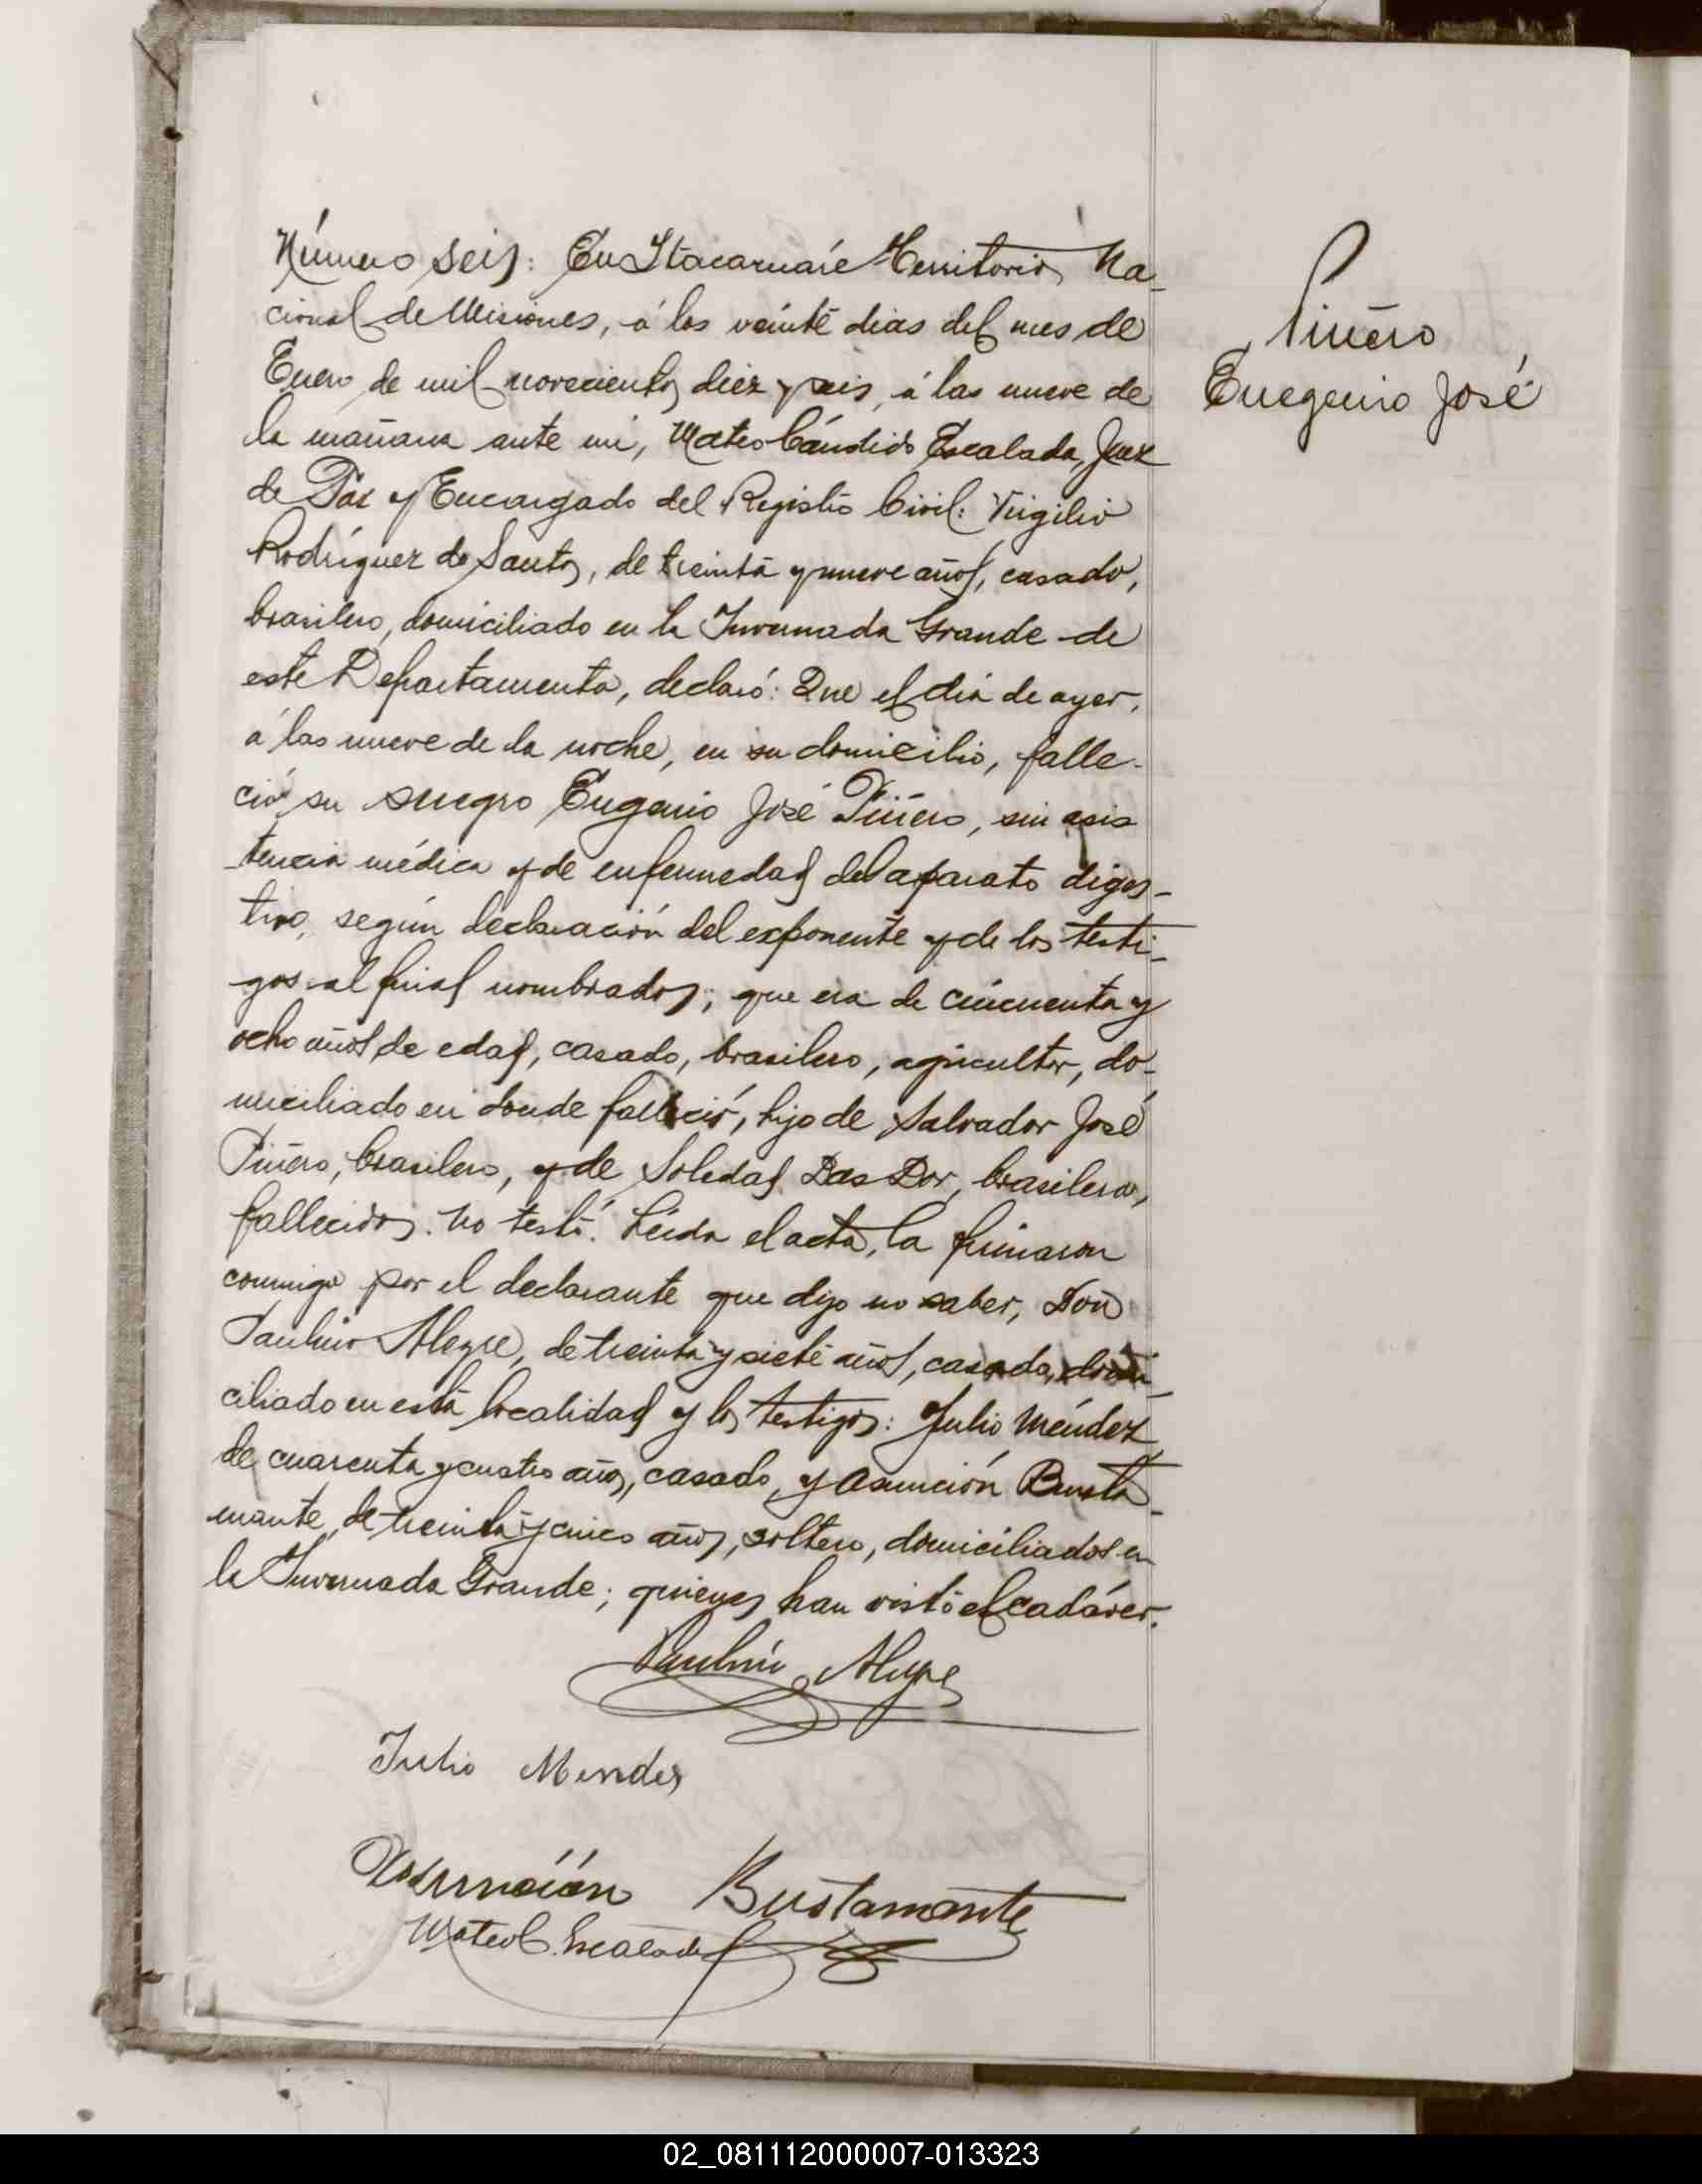 Número seis: En Itacaruaré Territorio Na-
cional de Misiones, á los veinte dias del mes de
Enero de mil novecientos diez y seis, á las nueve de
la mañana ante mi, Mateo Cándido Escalada, Juez
de Paz y Encargado del Registro Civil: Virgilio
Rodríguez do Santos, de treinta y nueve años, casado,
brasilero, domiciliado en la Invernada Grande de
este Departamento, declaró: Que el dia de ayer,
á las nueve de la noche, en su domicilio, falle-
ció su suegro Eugenio José Piñero, sin asis
tencia médica y de enfermedad del aparato diges-
tivo, según declaración del exponente y de los testi-
gos al final nombrados; que era de cincuenta y
ocho años de edad, casado, brasilero, agricultor, do-
miciliado en donde falleció, hijo de Salvador José
Piñero, brasilero, y de Soledad Das Dor, brasilera,
fallecidos. No testó. Leida el acta, la firmaron
conmigo por el declarante que dijo no saber, Don
Paulino Alegre, de treinta y siete años, casado, domi-
ciliado en esta localidad y los testigos: Julio Méndez,
de cuarenta y cuatro años, casado, y Asunción Busta-
mante, de treinta y cinco años, soltero, domiciliados en
la Invernada Grande; quienes han visto el cadáver.
Paulino Alegre
Julio Mendez
Asunción Bustamante
Mateo C. Escalada
Piñero
Euegenio José
02_081112000007-013323